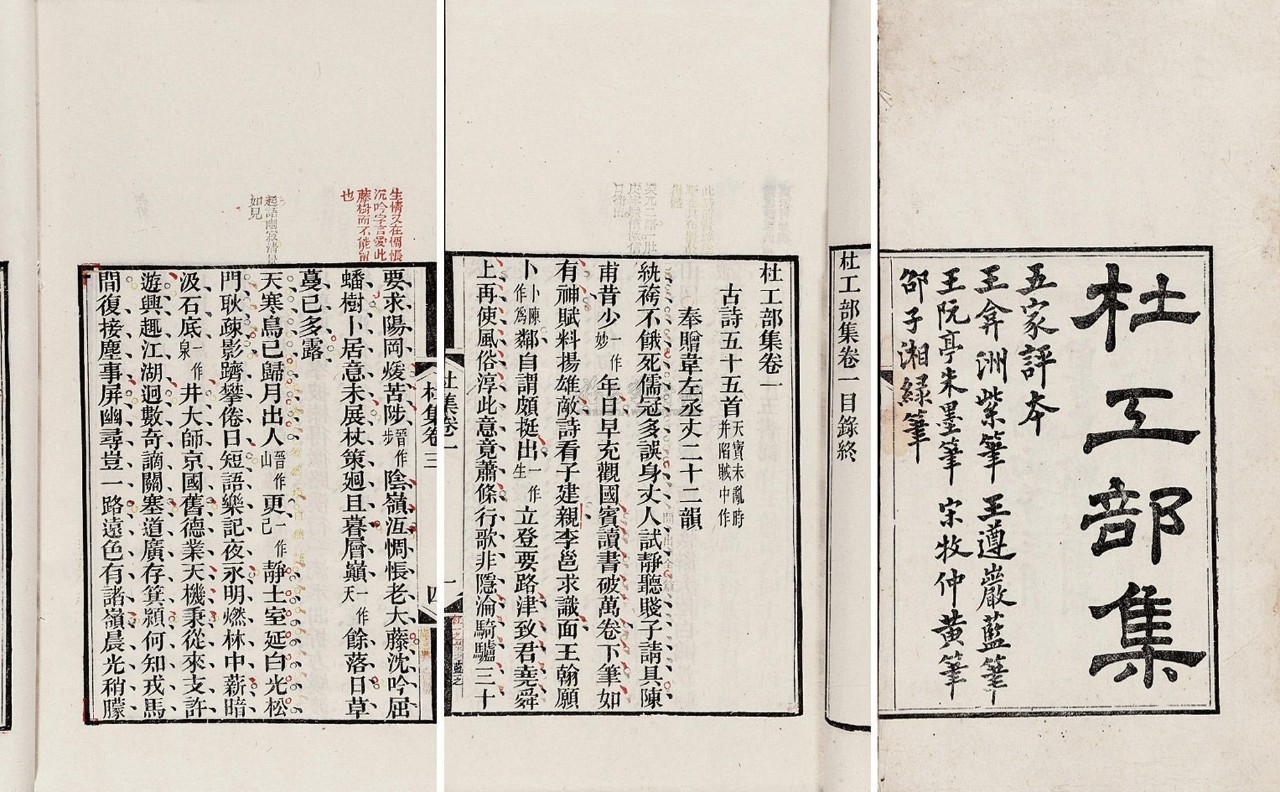 杜工部集
五家評本
王弇洲紫筆 王遵巖藍筆
王阮亭朱墨筆 宋牧仲黃筆
邵子湘緑筆
杜工部集卷一目錄終
杜工部集卷一
古詩五十五首天寶未亂時并陷賊中作
奉贈韋左丞丈二十二韻
紈袴不餓死儒冠多誤身丈人試靜聽賤子請具陳
甫昔少一作妙年日早充觀國賓讀書破萬卷下筆如
有神賦料揚雄敵詩看子建親李邕求識面王翰願
卜卜陳作為鄰自謂頗挺出一作生立登要路津致君堯舜
上再使風俗淳此意竟蕭條行歌非隱淪騎驢三十
杜集卷一
杜集卷三
四
生情又在惆悵
沉吟字言愛此
藤樹而不能
也
起語幽寂清景
如見
要求陽岡煖苦陟晉作步陰嶺沍惆悵老大藤沈吟屈
蟠樹卜居意未展杖策迴且暮層巔一作天餘落日草
蔓已多露
天寒鳥已歸月出人晉作山更一作已靜土室延白光松
門耿疎影躋攀倦日短語樂記夜永明燃林中薪暗
汲石底一作泉井大師京國舊德業天機秉從來支許
遊興趣江湖迥數奇謫關塞道廣存箕潁何知戎馬
間復接塵事屏幽尋豈一路遠色有諸嶺晨光稍朦